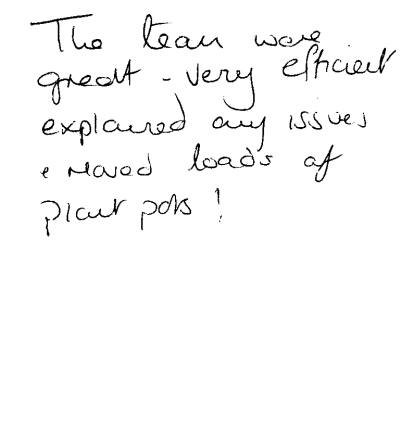 The team were
great - very efficient
explained any issues
& moved loads of
plant pots!